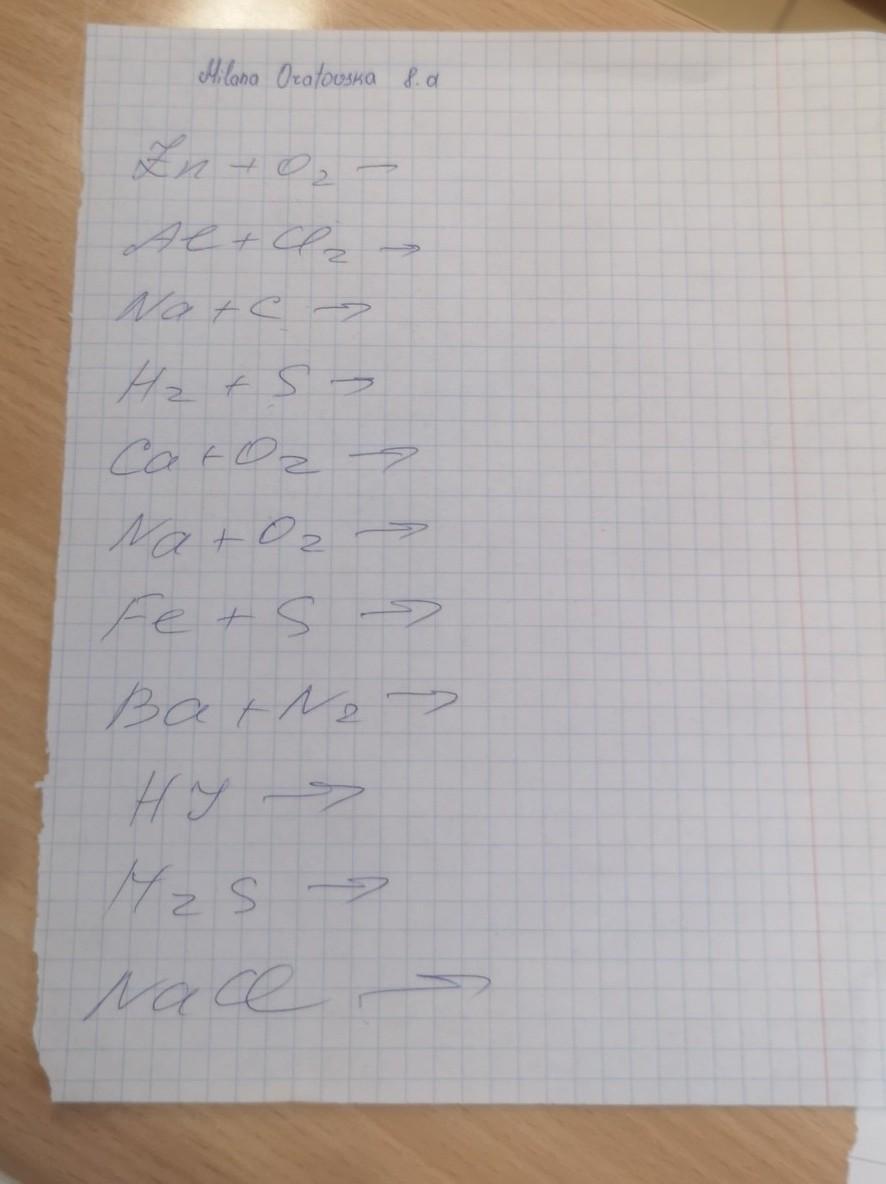 Milana Oratovska 8.a
Zn + O₂ →
Al + Cl₂ →
Na + C →
H₂ + S →
Ca + O₂ →
Na + O₂ →
Fe + S →
Ba + N₂ →
HJ →
H₂S →
NaCl →